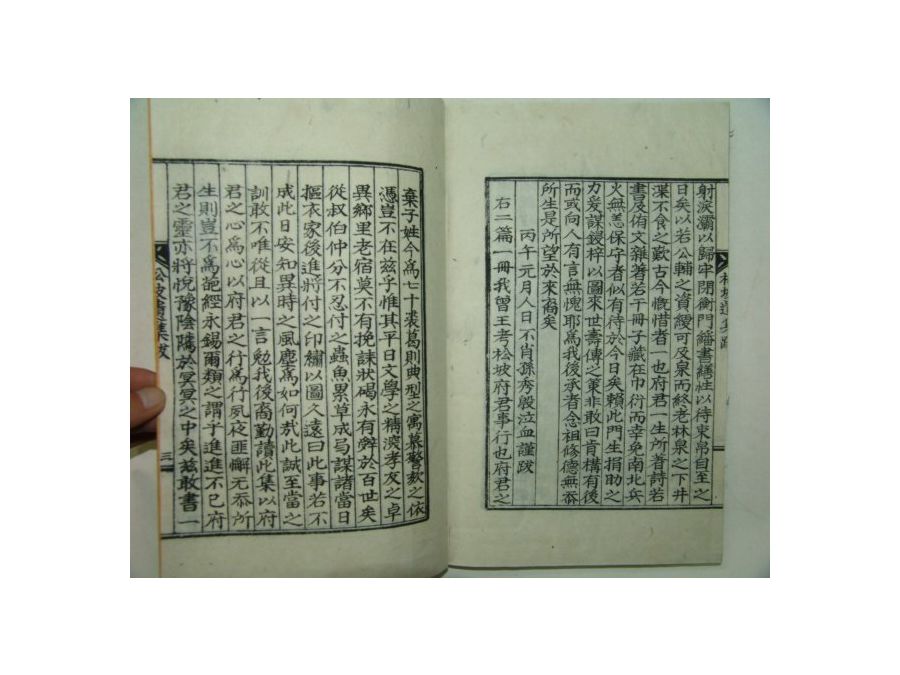 射淚灞以歸牢閉衡門繙書繕性以待束帛自至之
日矣以若公輔之資綆可及泉而終老林泉之下井
渫不食之歎古今慨惜者一也府君一生所著詩若
書及侑文雜著若干冊子藏在巾衍而幸免南北兵
火無恙保守者似有待於今日矣賴此門生捐助之
力爰謀鋟梓以圖來世壽傳之策非敢曰肯構有後
而或向人有言無愧耶爲我後承者念祖修德無忝
所生是所望於來裔矣
丙午元月人日不肖孫秀殷泣血謹跋
右二篇一冊我曾王考松坡府君事行也府君之
棄子姓今爲七十裘葛則典型之寓慕警欬之依
憑豈不在兹乎惟其平日文學之精湥孝友之卓
異鄉里老宿莫不有挽誄狀碣永有辭於百世矣
從叔伯仲分不忍付之蟲魚累草成局謀諸當日
摳衣家後進將付之印繡以圖久遠曰此事若不
成此日安知異時之風塵爲如何㢤此誠至當之
訓敢不唯從且以一言勉我後裔勤讀此集以府
君之心爲心以府君之行爲行夙夜匪懈无忝所
生則豈不爲葩經永錫爾類之謂乎進進不已府
君之靈亦將悅豫陰隲於冥冥之中矣兹敢書一
松坡遺集跋
三